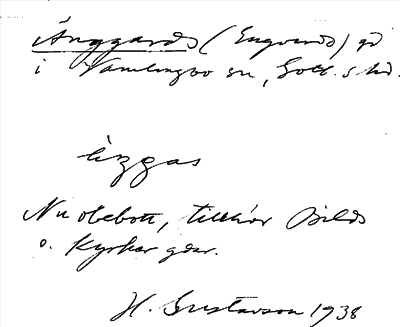 Änggards (Engvards) gd
i Vamlingbo sn, Gotl. s hd.
ȧzgas
Nu obebott, tillhör Bilds
o. Kyrker gdar.
H. Gustavson 1938